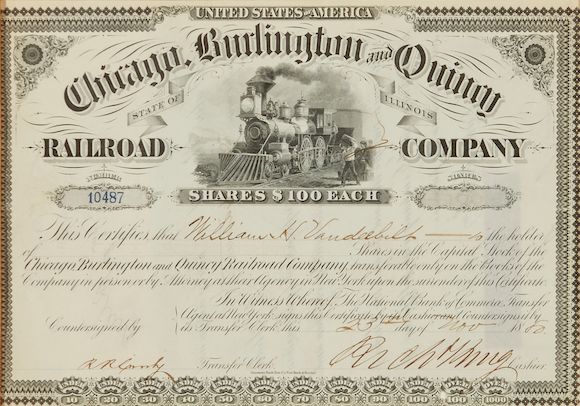 UNITED STATES OF AMERICA
Chicago, Burlington and Quincy
STATE OF ILLINOIS
RAILROAD COMPANY
NUMBER SHARES
10487
SHARES $100 EACH
This Certifies that William H. Vanderbilt is the holder
of Shares in the Capital Stock of the
Chicago, Burlington and Quincy Railroad Company transferable only on the books of the
Company in person or by Attorney at their Agency in New York upon the surrender of this Certificate.
In Witness Whereof The National Bank of Commerce Transfer
Agent at New York signs this Certificate by its Cashier and Countersigned by
its Transfer Clerk this 23rd day of Nov 1880
Countersigned by
Transfer Clerk Cashier
10 20 30 40 50 60 70 80 90 100 1000